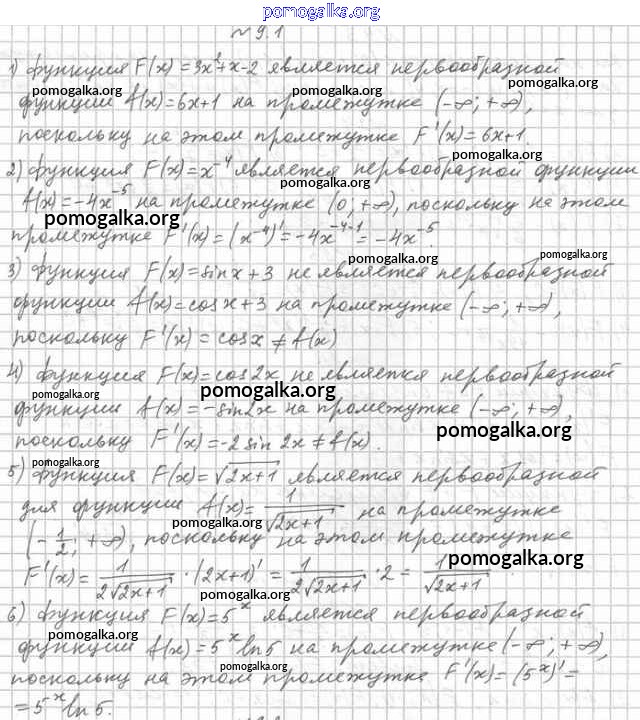 pomogalka.org
№ 9.1
1) функция F(x) = 3x²+x-2 является первообразной
pomogalka.org pomogalka.org
функции f(x)=6x+1 на промежутке (-∞; +∞),
pomogalka.org
поскольку на этом промежутке F'(x) = 6x+1.
pomogalka.org
2) функция F(x)=x⁻⁴ является первообразной функции
pomogalka.org
f(x) = -4x⁻⁵ на промежутке (0; +∞), поскольку на этом
pomogalka.org pomogalka.org
промежутке F'(x) = (x⁻⁴)' = -4x⁻⁴⁻¹ = -4x⁻⁵.
pomogalka.org
3) функция F(x)=sin x + 3 не является первообразной
pomogalka.org
функции f(x)=cos x + 3 на промежутке (-∞; +∞),
поскольку F'(x) = cos x ≠ f(x)
4) функция F(x)=cos 2x не является первообразной
pomogalka.org pomogalka.org
функции f(x) = -sin 2x на промежутке (-∞; +∞),
pomogalka.org
поскольку F'(x) = -2 sin 2x ≠ f(x).
pomogalka.org
5) функция F(x) = √(2x+1) является первообразной
для функции f(x) = 1/√(2x+1) на промежутке
pomogalka.org
(-1/2; +∞), поскольку на этом промежутке
pomogalka.org
F'(x) = 1/(2√(2x+1)) · (2x+1)' = 1/(2√(2x+1)) · 2 = 1/√(2x+1)
pomogalka.org
6) функция F(x) = 5ˣ является первообразной
pomogalka.org
функции f(x) = 5ˣ ln 5 на промежутке (-∞; +∞),
pomogalka.org
поскольку на этом промежутке F'(x) = (5ˣ)' =
= 5ˣ ln 5.